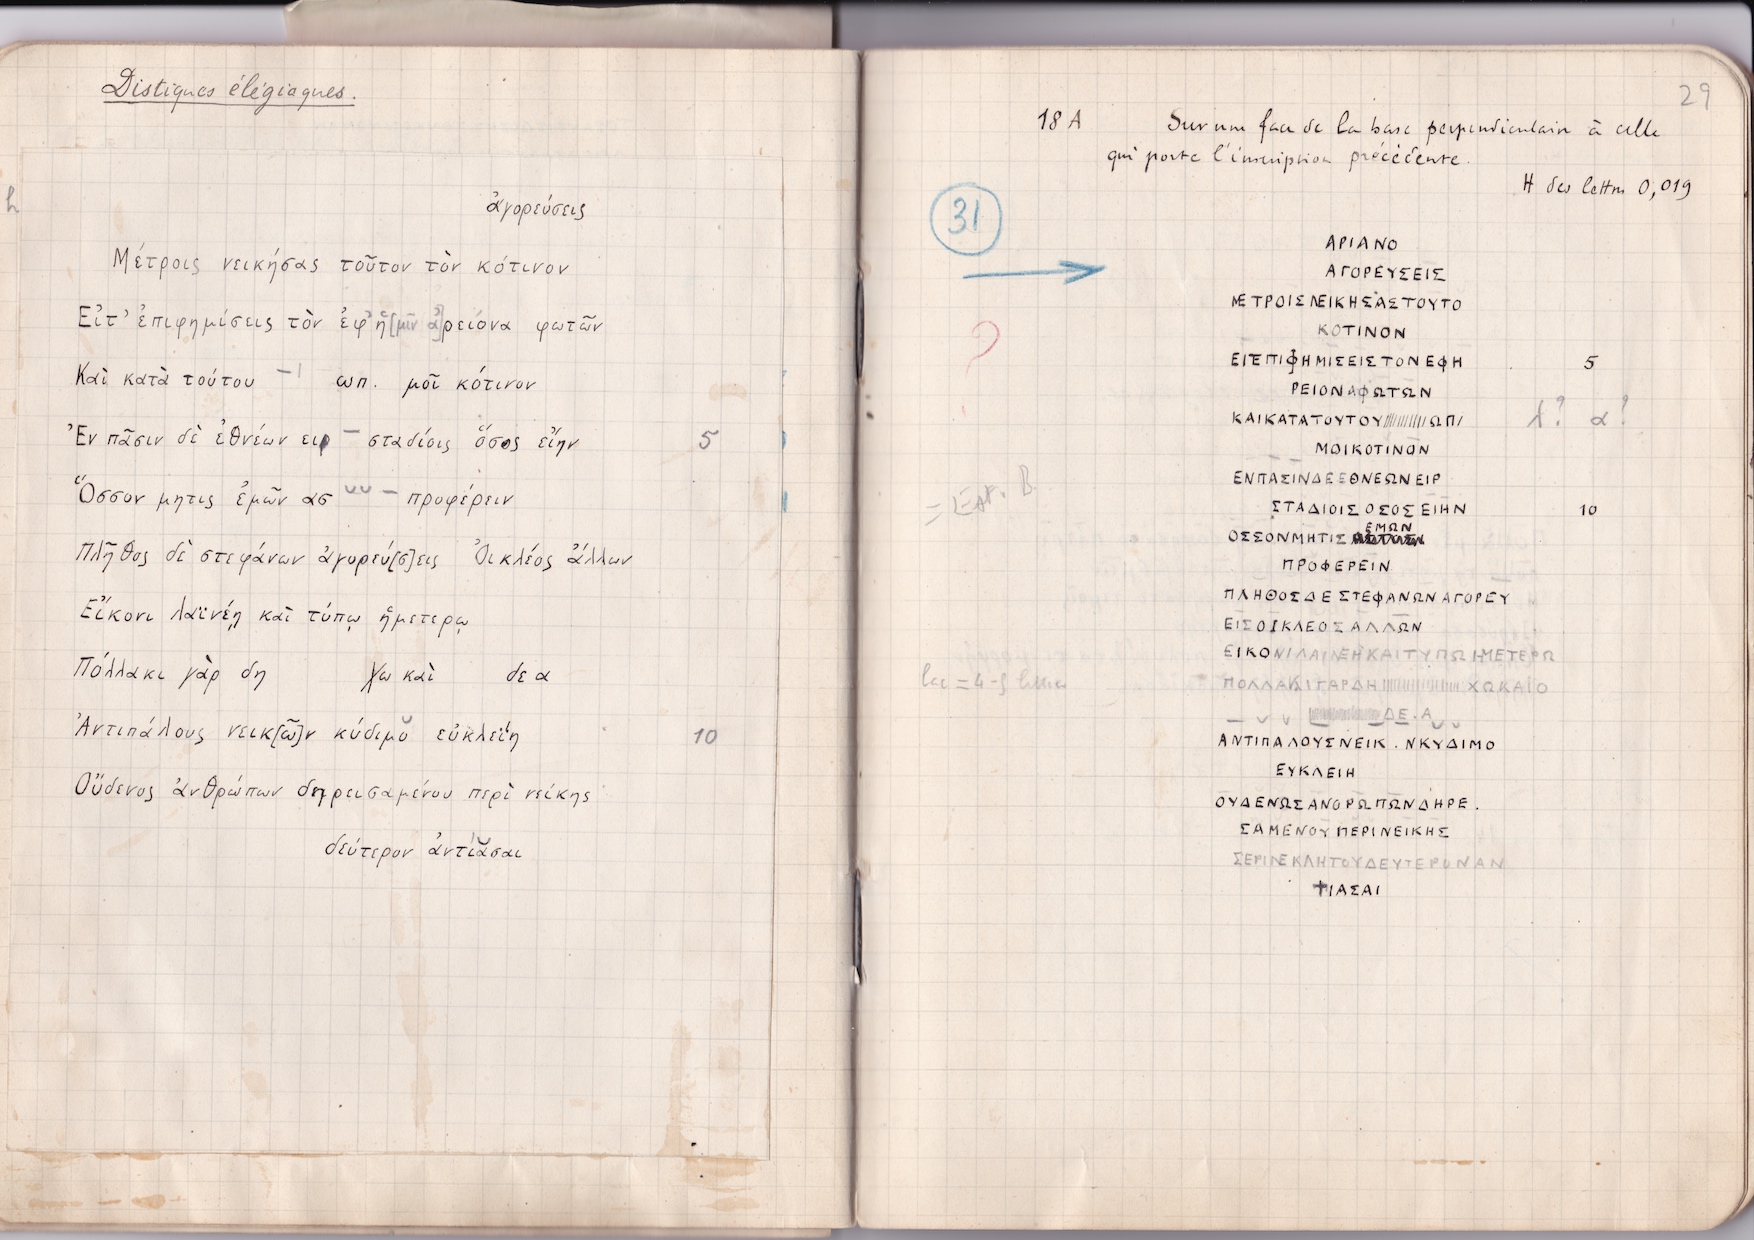 Distiques élégiaques.
h
ἀγορεύσεις
Μέτροις νεικήσας τοῦτον τὸν κότινον
Εἶτ' ἐπιφημίσεις τὸν ἐφ' ἡ[μῖν ἀ]ρείονα φωτῶν
Καὶ κατὰ τούτου – ωπ. μοῖ κότινον
Ἐν πᾶσιν δὲ ἐθνέων ειρ – σταδίοις ὅσος εἴην 5
Ὅσσον μητις ἐμῶν ασ ⏑⏑ – προφέρειν
Πλῆθος δὲ στεφάνων ἀγορεύ[σ]εις Ὀικλέος ἄλλων
Εἴκονι λαϊνέῃ καὶ τύπῳ ἡμετερῳ
Πόλλακι γὰρ δη χω καὶ δε α
Ἀντιπάλους νεικ[ῶ]ν κύδιμο εὐκλείη 10
Οὔδενος ἀνθρώπων δηρεισαμένου περὶ νείκης
δεύτερον ἀντιᾶσαι
29
18 A Sur une face de la base perpendiculaire à celle
qui porte l'inscription précédente.
H des lettres 0,019
31
ΑΡΙΑΝΟ
ΑΓΟΡΕΥΣΕΙΣ
ΜΕΤΡΟΙΣΝΕΙΚΗΣΑΣΤΟΥΤΟ
ΚΟΤΙΝΟΝ
?
ΕΙΤΕΠΙΦΗΜΙΣΕΙΣΤΟΝΕΦΗ 5
ΡΕΙΟΝΑΦΩΤΩΝ
ΚΑΙΚΑΤΑΤΟΥΤΟΥ//////////ΩΠ/ λ? α?
ΜΟΙΚΟΤΙΝΟΝ
ΕΝΠΑΣΙΝΔΕΕΘΝΕΩΝΕΙΡ
= Est. B
ΣΤΑΔΙΟΙΣΟΣΟΣΕΙΗΝ 10
ΕΜΩΝ
ΟΣΣΟΝΜΗΤΙΣ
ΠΡΟΦΕΡΕΙΝ
ΠΛΗΘΟΣΔΕΣΤΕΦΑΝΩΝΑΓΟΡΕΥ
ΕΙΣΟΙΚΛΕΟΣΑΛΛΩΝ
ΕΙΚΟΝΙΛΑΙΝΕΗΚΑΙΤΥΠΩΙ-ΜΕΤΕΡΩ
lac = 4-5 lettres
ΠΟΛΛΑΚΙΓΑΡΔΗ//////////ΧΩΚΑΙΟ
ΔΕ.Α
ΑΝΤΙΠΑΛΟΥΣΝΕΙΚ.ΝΚΥΔΙΜΟ
ΕΥΚΛΕΙΗ
ΟΥΔΕΝΩΣΑΝΘΡΩΠΩΝΔΗΡΕ.
ΣΑΜΕΝΟΥΠΕΡΙΝΕΙΚΗΣ
ΣΕΡΙΝΕΚΛΗΤΟΥΔΕΥΤΕΡΟΝΑΝ
ΤΙΑΣΑΙ